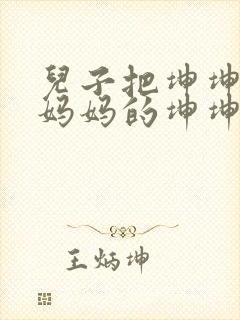 兒子把坤坤
妈妈的坤坤
王炳坤